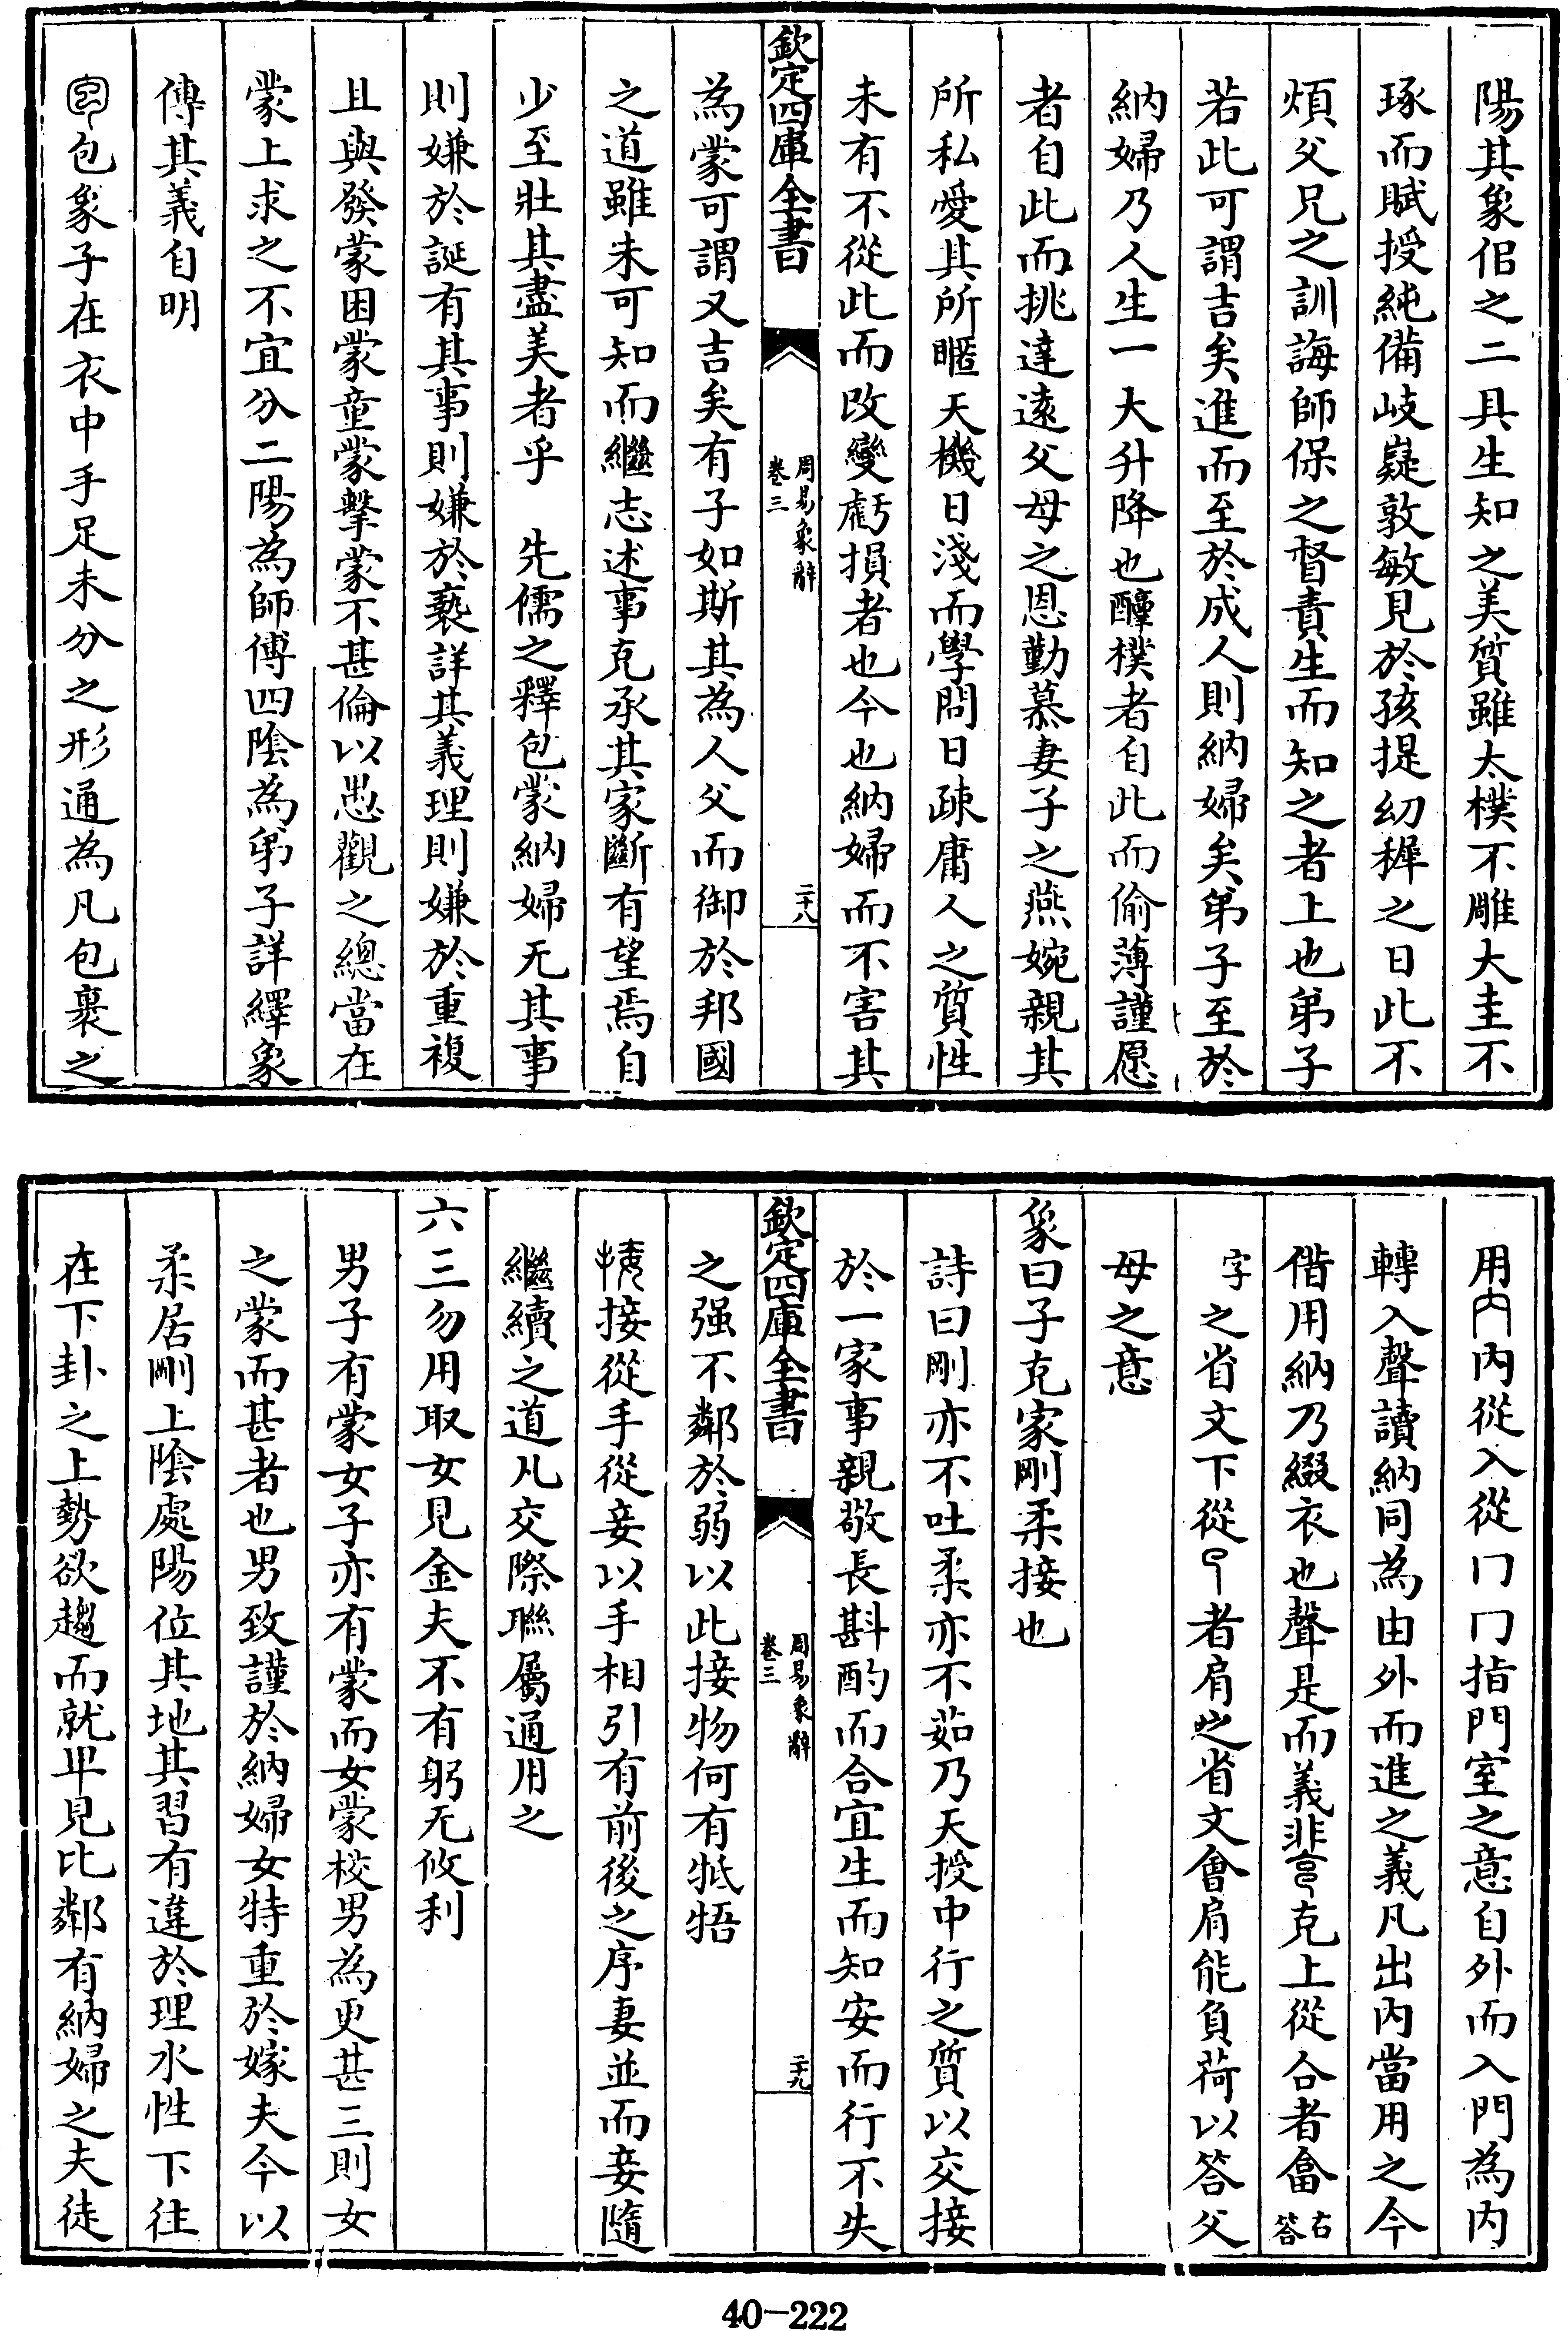 陽其象侣之二具生知之美質雖太樸不雕大圭不
琢而賦授純備岐嶷敦敏見於孩提幼穉之日此不
煩父兄之訓誨師保之督責生而知之者上也弟子
若此可謂吉矣進而至於成人則納婦矣弟子至於
納婦乃人生一大升降也醇樸者自此而偷薄謹愿
者自此而挑達遠父母之恩勤慕妻子之燕婉親其
所私愛其所暱天機日淺而學問日疎庸人之質性
未有不從此而改變虧損者也今也納婦而不害其
欽定四庫全書
周易象辭
卷三
二十八
為蒙可謂又吉矣有子如斯其為人父而御於邦國
之道雖未可知而繼志述事克承其家斷有望焉自
少至壯其盡美者乎　先儒之釋包蒙納婦无其事
則嫌於誕有其事則嫌於褻詳其義理則嫌於重複
且與發蒙困蒙童蒙擊蒙不甚倫以愚觀之總當在
蒙上求之不宜分二陽為師傅四陰為弟子詳繹象
傳其義自明
包象子在衣中手足未分之形通為凡包裹之
用內從入從冂冂指門室之意自外而入門為内
轉入聲讀納同為由外而進之義凡出内當用之今
借用納乃綴衣也聲是而義非克上從合者畣古答
字之省文下從者肩之省文會肩能負荷以答父
母之意
象曰子克家剛柔接也
詩曰剛亦不吐柔亦不茹乃天授中行之質以交接
於一家事親敬長斟酌而合宜生而知安而行不失
欽定四庫全書
周易象辭
卷三
二十九
之强不鄰於弱以此接物何有牴牾
接從手從妾以手相引有前後之序妻並而妾隨
繼續之道凡交際聯屬通用之
六三勿用取女見金夫不有躬无攸利
男子有蒙女子亦有蒙而女蒙校男為更甚三則女
之蒙而甚者也男致謹於納婦女特重於嫁夫今以
柔居剛上陰處陽位其地其習有違於理水性下往
在下卦之上勢欲趨而就卑見比鄰有納婦之夫徒
40-222